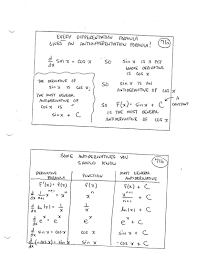 EVERY DIFFERENTIATION FORMULA
GIVES AN ANTIDIFFERENTIATION FORMULA!
d/dx sin x = cos x
SO
sin x IS A FCT
WHOSE DERIVATIVE
IS cos x
THE DERIVATIVE OF
sin x IS cos x
SO
sin x IS AN
ANTIDERIVATIVE OF cos x
THE MOST GENERAL
ANTIDERIVATIVE OF
cos x IS
sin x + C
SO
F(x) = sin x + C
A
CONSTANT
IS THE MOST GENERAL
ANTIDERIVATIVE OF cos x
SOME ANTIDERIVATIVES YOU
SHOULD KNOW
DERIVATIVE
FORMULA
FUNCTION
MOST GENERAL
ANTIDERIVATIVE
F'(x) = f(x)
f(x)
F(x) + C
x^n
ln(x) + C
e^x
e^x + C
d/dx sin x = cos x
cos x
sin x + C
d/dx (-cos x) = sin x
sin x
-cos x + C